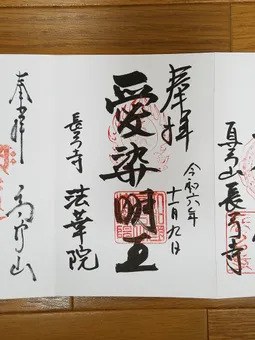 真弓山 長弓寺
奉拝
令和六年
十一月九日
愛染明王
長弓寺 法華院
奉拝